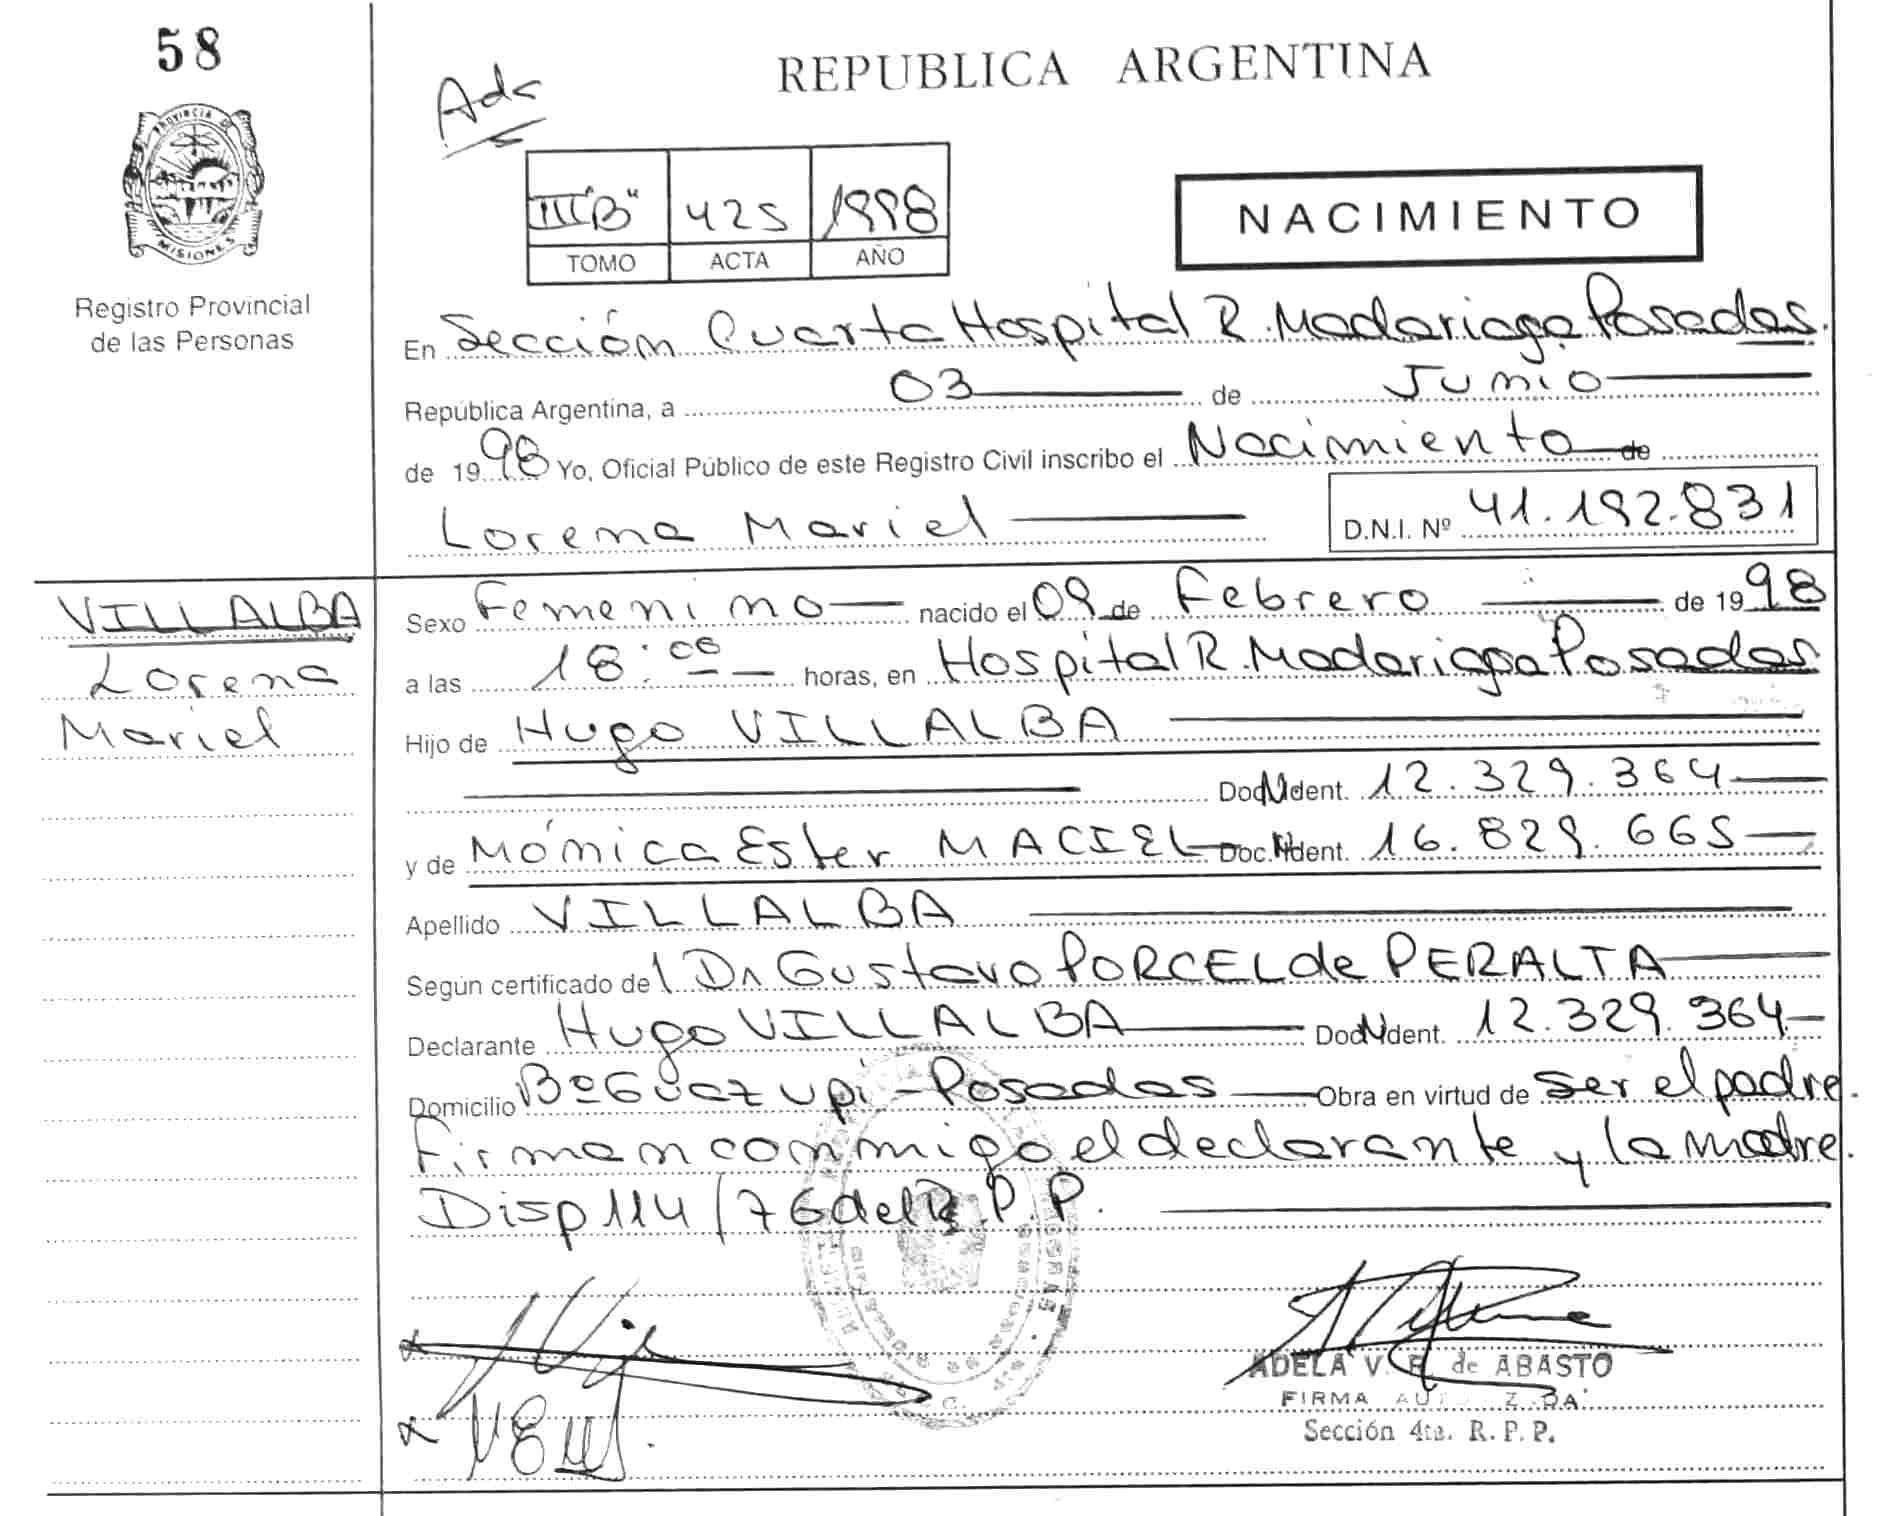 58
Ada
REPUBLICA ARGENTINA
PROVINCIA DE
MISIONES
Registro Provincial
de las Personas
III "B" 425 1998
TOMO ACTA AÑO
NACIMIENTO
En Sección Cuarta Hospital R. Madariaga Posadas.
República Argentina, a 03 de Junio
de 1998 Yo, Oficial Público de este Registro Civil inscribo el Nacimiento de
Lorena Mariel
D.N.I. Nº 41.192.831
VILLALBA
Lorena
Mariel
Sexo Femenino nacido el 09 de Febrero de 1998
a las 18:00 horas, en Hospital R. Madariaga Posadas
Hijo de Hugo VILLALBA
Doc. Ident. 12.329.364
y de Mónica Ester MACIEL Doc. Ident. 16.829.665
Apellido VILLALBA
Según certificado del Dr Gustavo PORCEL de PERALTA
Declarante Hugo VILLALBA Doc. Ident. 12.329.364
Domicilio Bº Guazupi - Posadas Obra en virtud de ser el padre.
Firman conmigo el declarante y la madre.
Disp 114/76 del R.P.P.
ADELA V. de ABASTO
FIRMA
Sección 4ta. R. P. P.